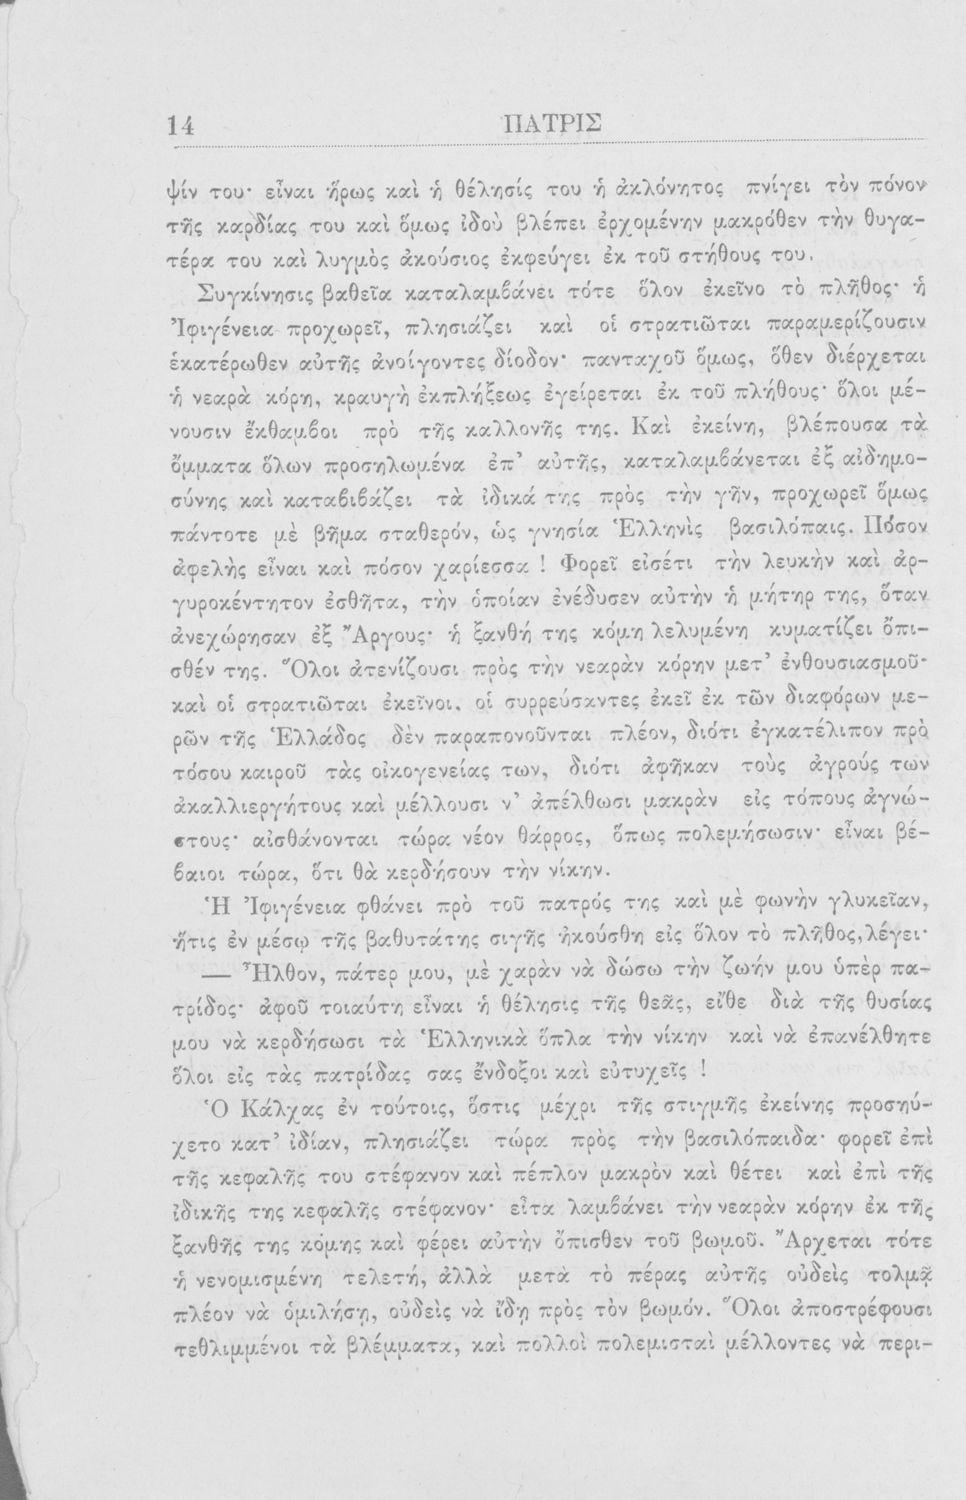 14 ΠΑΤΡΙΣ
ψίν του· εἶναι ἥρως καὶ ἡ θέλησίς του ἡ ἀκλόνητος πνίγει τὸν πόνον
τῆς καρδίας του καὶ ὅμως ἰδοὺ βλέπει ἐρχομένην μακρόθεν τὴν θυγα-
τέρα του καὶ λυγμὸς ἀκούσιος ἐκφεύγει ἐκ τοῦ στήθους του.
Συγκίνησις βαθεῖα καταλαμβάνει τότε ὅλον ἐκεῖνο τὸ πλῆθος· ἡ
Ἰφιγένεια προχωρεῖ, πλησιάζει καὶ οἱ στρατιῶται παραμερίζουσιν
ἑκατέρωθεν αὐτῆς ἀνοίγοντες δίοδον· πανταχοῦ ὅμως, ὅθεν διέρχεται
ἡ νεαρὰ κόρη, κραυγὴ ἐκπλήξεως ἐγείρεται ἐκ τοῦ πλήθους· ὅλοι μέ-
νουσιν ἔκθαμβοι πρὸ τῆς καλλονῆς της. Καὶ ἐκείνη, βλέπουσα τὰ
ὄμματα ὅλων προσηλωμένα ἐπ’ αὐτῆς, καταλαμβάνεται ἐξ αἰδημο-
σύνης καὶ καταβιβάζει τὰ ἰδικά της πρὸς τὴν γῆν, προχωρεῖ ὅμως
πάντοτε μὲ βῆμα σταθερόν, ὡς γνησία Ἑλληνὶς βασιλόπαις. Πόσον
ἀφελὴς εἶναι καὶ πόσον χαρίεσσα ! Φορεῖ εἰσέτι τὴν λευκὴν καὶ ἀρ-
γυροκέντητον ἐσθῆτα, τὴν ὁποίαν ἐνέδυσεν αὐτὴν ἡ μήτηρ της, ὅταν
ἀνεχώρησαν ἐξ Ἄργους· ἡ ξανθή της κόμη λελυμένη κυματίζει ὄπι-
σθέν της. Ὅλοι ἀτενίζουσι πρὸς τὴν νεαρὰν κόρην μετ’ ἐνθουσιασμοῦ·
καὶ οἱ στρατιῶται ἐκεῖνοι, οἱ συρρεύσαντες ἐκεῖ ἐκ τῶν διαφόρων με-
ρῶν τῆς Ἑλλάδος δὲν παραπονοῦνται πλέον, διότι ἐγκατέλιπον πρὸ
τόσου καιροῦ τὰς οἰκογενείας των, διότι ἀφῆκαν τοὺς ἀγρούς των
ἀκαλλιεργήτους καὶ μέλλουσι ν’ ἀπέλθωσι μακρὰν εἰς τόπους ἀγνώ-
στους· αἰσθάνονται τώρα νέον θάρρος, ὅπως πολεμήσωσιν· εἶναι βέ-
βαιοι τώρα, ὅτι θὰ κερδήσουν τὴν νίκην.
Ἡ Ἰφιγένεια φθάνει πρὸ τοῦ πατρός της καὶ μὲ φωνὴν γλυκεῖαν,
ἥτις ἐν μέσῳ τῆς βαθυτάτης σιγῆς ἠκούσθη εἰς ὅλον τὸ πλῆθος, λέγει·
— Ἦλθον, πάτερ μου, μὲ χαρὰν νὰ δώσω τὴν ζωήν μου ὑπὲρ πα-
τρίδος· ἀφοῦ τοιαύτη εἶναι ἡ θέλησις τῆς θεᾶς, εἴθε διὰ τῆς θυσίας
μου νὰ κερδήσωσι τὰ Ἑλληνικὰ ὅπλα τὴν νίκην καὶ νὰ ἐπανέλθητε
ὅλοι εἰς τὰς πατρίδας σας ἔνδοξοι καὶ εὐτυχεῖς !
Ὁ Κάλχας ἐν τούτοις, ὅστις μέχρι τῆς στιγμῆς ἐκείνης προσηύ-
χετο κατ’ ἰδίαν, πλησιάζει τώρα πρὸς τὴν βασιλόπαιδα· φορεῖ ἐπὶ
τῆς κεφαλῆς του στέφανον καὶ πέπλον μακρὸν καὶ θέτει καὶ ἐπὶ τῆς
ἰδικῆς της κεφαλῆς στέφανον· εἶτα λαμβάνει τὴν νεαρὰν κόρην ἐκ τῆς
ξανθῆς της κόμης καὶ φέρει αὐτὴν ὄπισθεν τοῦ βωμοῦ. Ἄρχεται τότε
ἡ νενομισμένη τελετή, ἀλλὰ μετὰ τὸ πέρας αὐτῆς οὐδεὶς τολμᾷ
πλέον νὰ ὁμιλήσῃ, οὐδεὶς νὰ ἴδῃ πρὸς τὸν βωμόν. Ὅλοι ἀποστρέφουσι
τεθλιμμένοι τὰ βλέμματα, καὶ πολλοὶ πολεμισταὶ μέλλοντες νὰ περι-